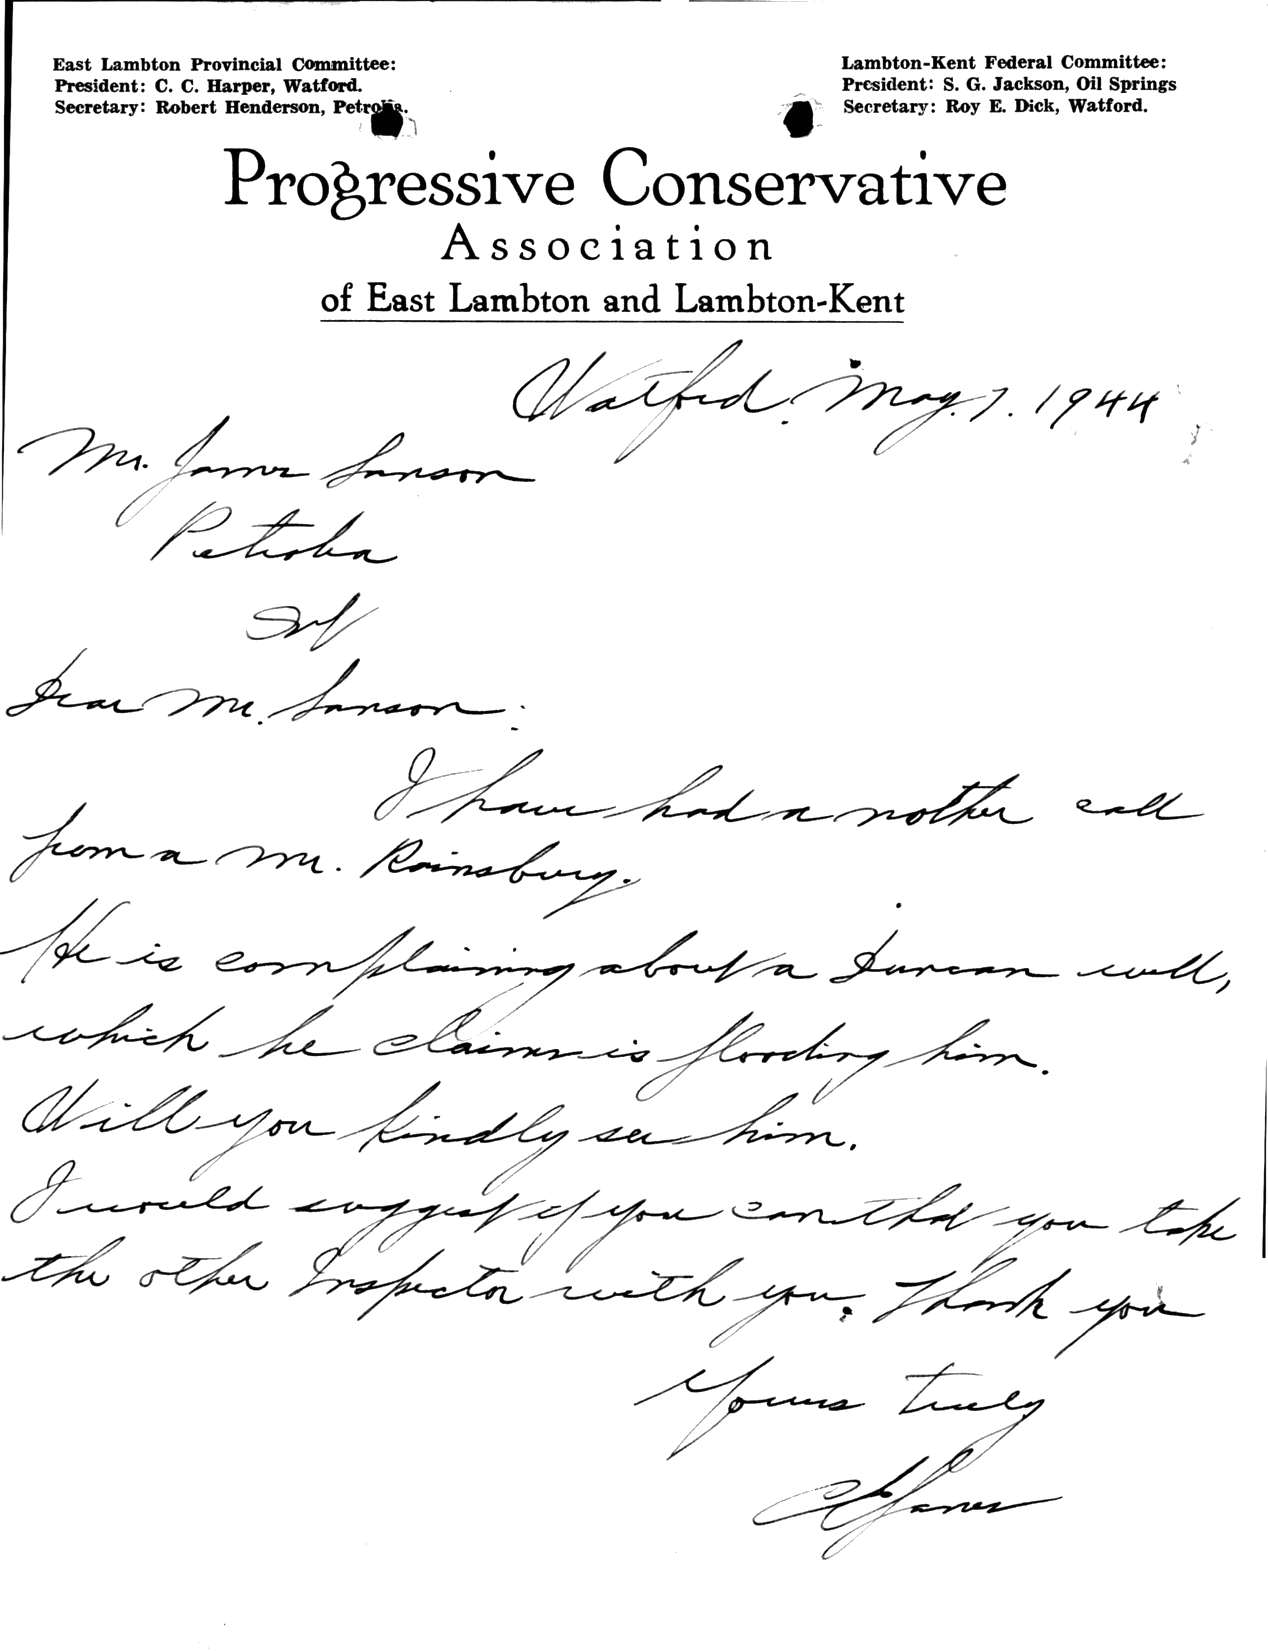 East Lambton Provincial Committee:
President: C. C. Harper, Watford.
Secretary: Robert Henderson, Petrolia.
Lambton-Kent Federal Committee:
President: S. G. Jackson, Oil Springs
Secretary: Roy E. Dick, Watford.
Progressive Conservative
Association
of East Lambton and Lambton-Kent
Watford. May. 7. 1944
Mr. James Sanson
Petrolia
Ont
Dear Mr. Sanson:
I have had a nother call
from a Mr. Rainsbury.
He is complaining about a Duncan well,
which he claims is flooding him.
Will you kindly see him.
I would suggest if you can that you take
the other Inspector with you. Thank you
Yours truly
Janes